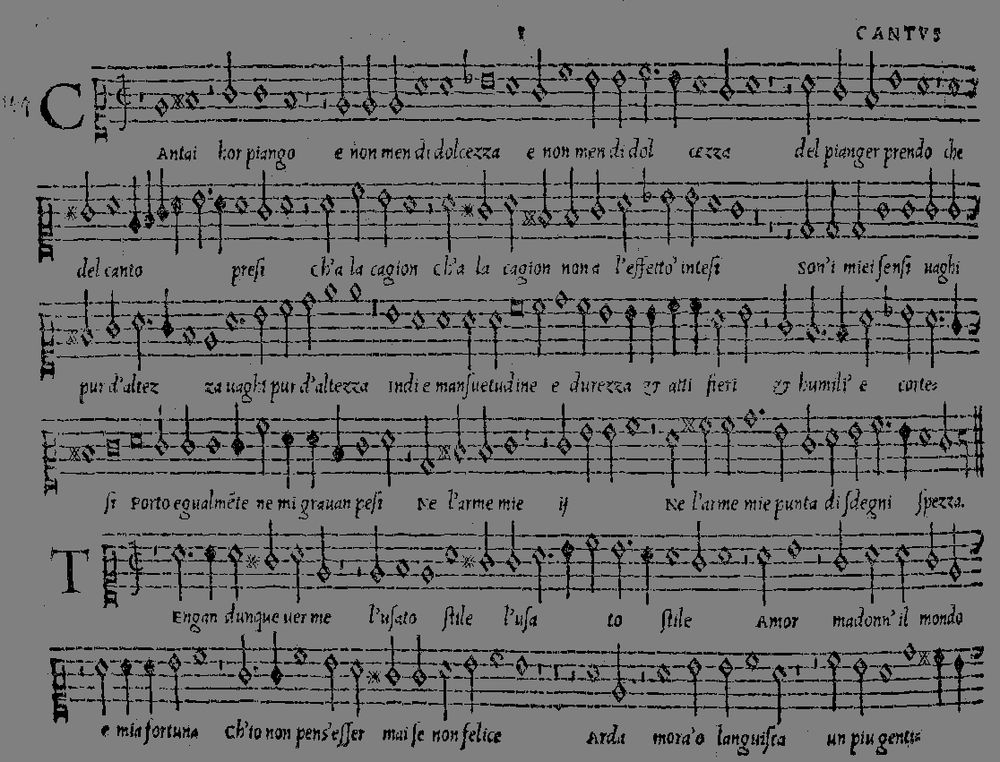 CANTVS
CAntai hor piango e non men di dolcezza e non men di dol cezza del pianger prendo che
del canto presi Ch'a la cagion Ch'a la cagion non a l'effetto' intesi Son'i miei sensi uaghi
pur d'altez za uaghi pur d'altezza Indi e mansuetudine e durezza & atti fieri & humili' e cortes
si Porto egualmẽte ne mi grauan pesi Ne l'arme mie ij Ne l'arme mie punta di sdegni spezza.
TEngan dunque uer me l'usato stile l'usa to stile Amor madonn' il mondo
e mia fortuna Ch'io non pens'esser mai se non felice Arda mora'o languisca un piu gentil